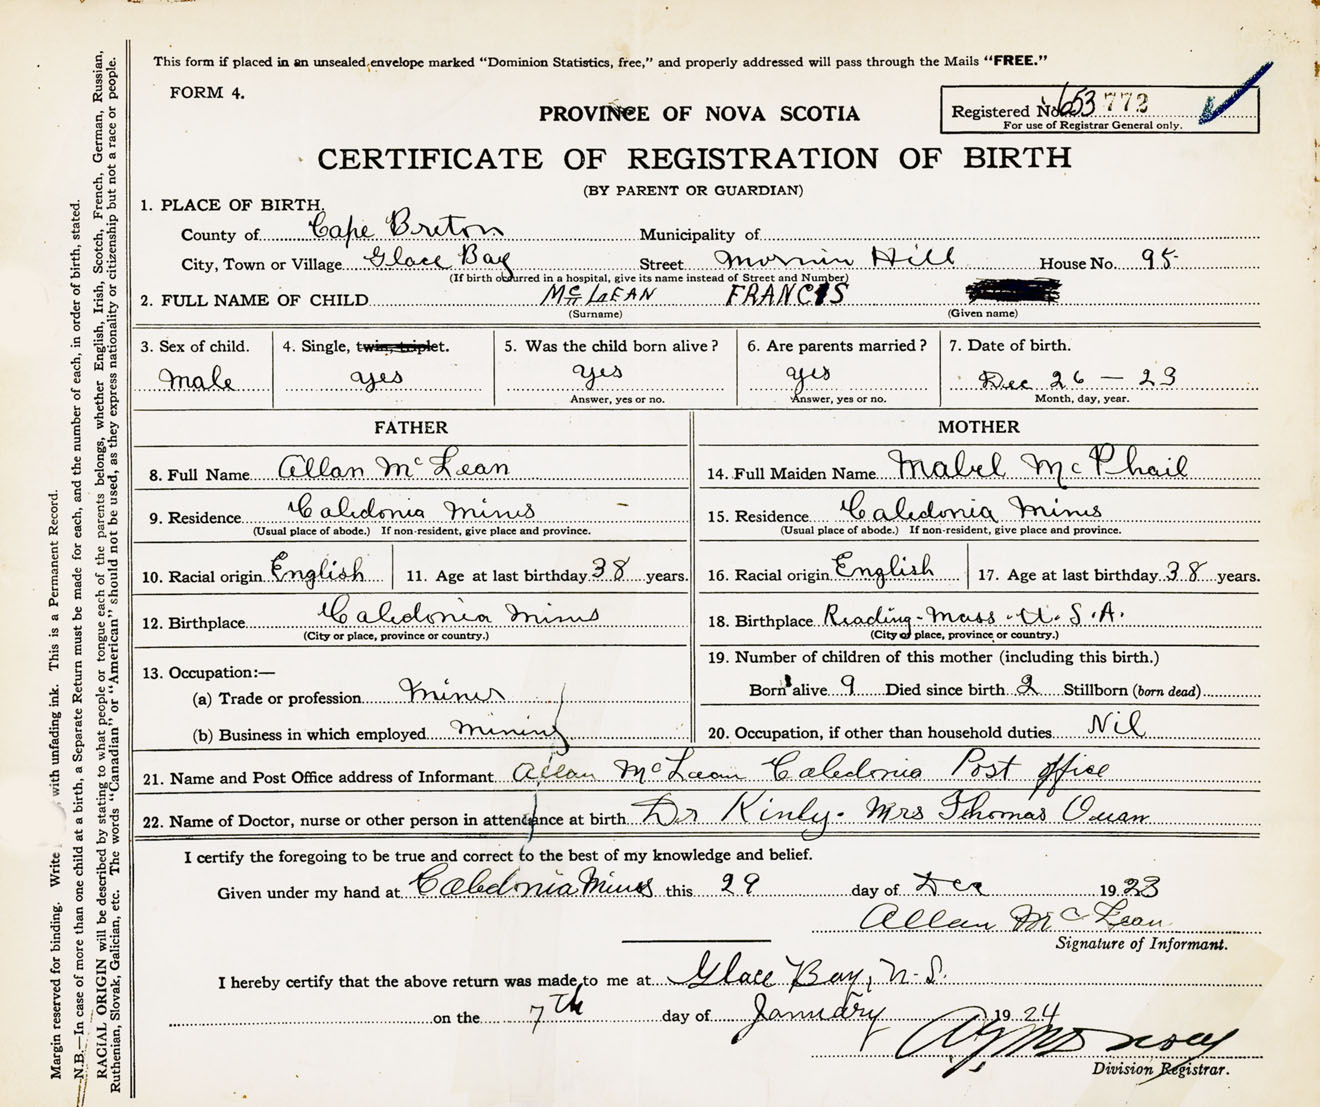 This form if placed in an unsealed envelope marked "Dominion Statistics, free," and properly addressed will pass through the Mails "FREE."
FORM 4.
PROVINCE OF NOVA SCOTIA
Registered No. 653 772
For use of Registrar General only.
CERTIFICATE OF REGISTRATION OF BIRTH
(BY PARENT OR GUARDIAN)
1. PLACE OF BIRTH.
County of Cape Breton Municipality of
City, Town or Village Glace Bay Street Hill House No. 95
(If birth occurred in a hospital, give its name instead of Street and Number)
2. FULL NAME OF CHILD McLEAN FRANCIS
(Surname) (Given name)
3. Sex of child. 4. Single, twin, triplet. 5. Was the child born alive? 6. Are parents married? 7. Date of birth.
Male yes yes yes Dec 26 - 23
Answer, yes or no. Answer, yes or no. Month, day, year.
FATHER MOTHER
8. Full Name Allan McLean 14. Full Maiden Name Mabel McPhail
9. Residence Caledonia Mines 15. Residence Caledonia Mines
(Usual place of abode.) If non-resident, give place and province. (Usual place of abode.) If non-resident, give place and province.
10. Racial origin English 11. Age at last birthday 38 years. 16. Racial origin English 17. Age at last birthday 38 years.
12. Birthplace Caledonia Mines 18. Birthplace Reading - Mass - U.S.A.
(City or place, province or country.) (City or place, province or country.)
13. Occupation:— 19. Number of children of this mother (including this birth.)
(a) Trade or profession Miner Born alive 9 Died since birth 2 Stillborn (born dead)
(b) Business in which employed Mining 20. Occupation, if other than household duties Nil
21. Name and Post Office address of Informant Allan McLean Caledonia Post office
22. Name of Doctor, nurse or other person in attendance at birth Dr Kinly. Mrs Thomas
I certify the foregoing to be true and correct to the best of my knowledge and belief.
Given under my hand at Caledonia Mines this 29 day of Dec 1923
Allan McLean
Signature of Informant.
I hereby certify that the above return was made to me at Glace Bay, N.S.
on the 7th day of January 1924
Division Registrar.
Margin reserved for binding. Write with unfading ink. This is a Permanent Record.
N.B.—In case of more than one child at a birth, a Separate Return must be made for each, and the number of each, in order of birth, stated.
RACIAL ORIGIN will be described by stating to what people or tongue each of the parents belongs, whether English, Irish, Scotch, French, German, Russian,
Ruthenian, Slovak, Galician, etc. The words "Canadian" or "American" should not be used, as they express nationality or citizenship but not a race or people.